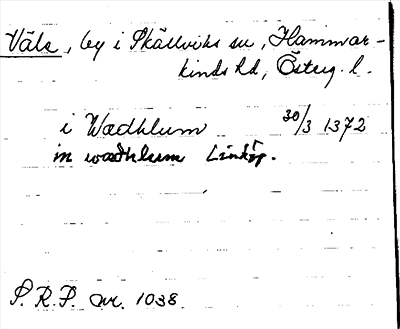 Väla, by i Skällviks sn, Hammar-
kinds hd, Österg. l.
i Wædhlum 30/3 1372
in wædhlum Linköp.
S. R. P. nr. 1038